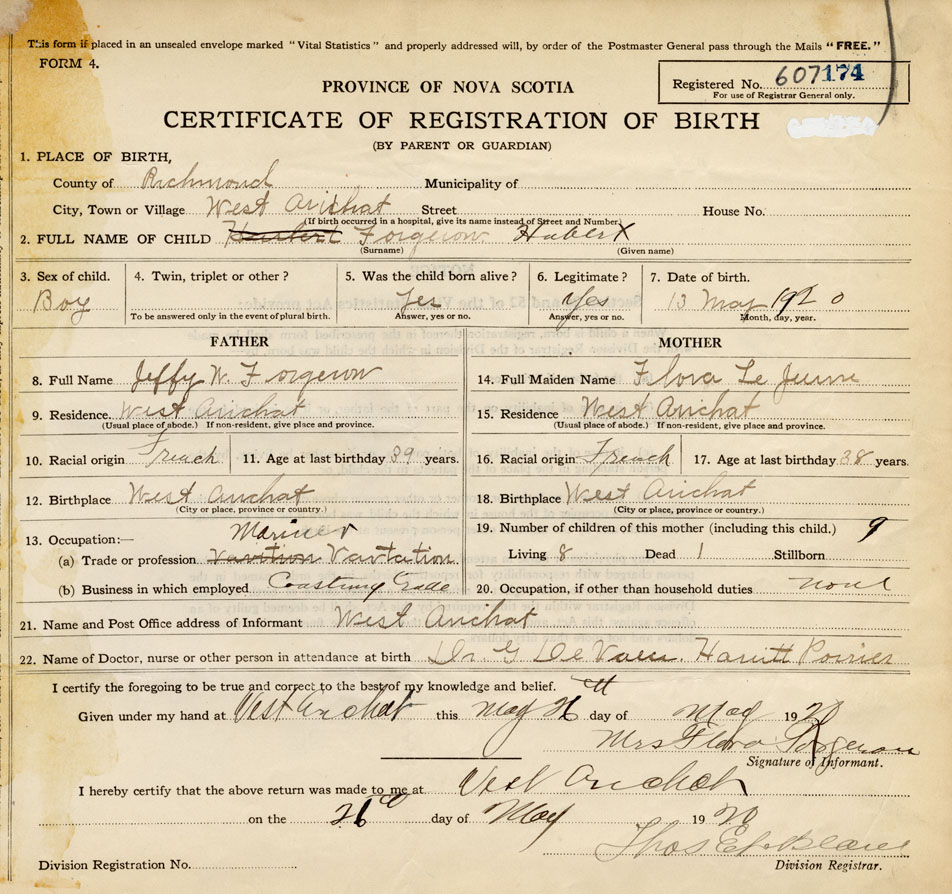 This form if placed in an unsealed envelope marked "Vital Statistics" and properly addressed will, by order of the Postmaster General pass through the Mails "FREE."
FORM 4.
Registered No. 607174
For use of Registrar General only.
PROVINCE OF NOVA SCOTIA
CERTIFICATE OF REGISTRATION OF BIRTH
(BY PARENT OR GUARDIAN)
1. PLACE OF BIRTH,
County of Richmond Municipality of
City, Town or Village West Arichat Street House No.
(If birth occurred in a hospital, give its name instead of Street and Number.)
2. FULL NAME OF CHILD Forgeron Hubert
(Surname) (Given name)
3. Sex of child. 4. Twin, triplet or other? 5. Was the child born alive? 6. Legitimate? 7. Date of birth.
Boy Yes Yes 13 May 1920
To be answered only in the event of plural birth. Answer, yes or no. Answer, yes or no. Month, day, year.
FATHER MOTHER
8. Full Name Jeffy W. Forgeron 14. Full Maiden Name Flora Le Jeune
9. Residence. West Arichat 15. Residence West Arichat
(Usual place of abode.) If non-resident, give place and province. (Usual place of abode.) If non-resident, give place and province.
10. Racial origin French 11. Age at last birthday 39 years. 16. Racial origin French 17. Age at last birthday 38 years.
12. Birthplace West Arichat 18. Birthplace West Arichat
(City or place, province or country.) (City or place, province or country.)
13. Occupation:— Mariner 19. Number of children of this mother (including this child.) 9
(a) Trade or profession Living 8 Dead 1 Stillborn
(b) Business in which employed Coasting Trade 20. Occupation, if other than household duties none
21. Name and Post Office address of Informant West Arichat
22. Name of Doctor, nurse or other person in attendance at birth Dr. G Poirier
I certify the foregoing to be true and correct to the best of my knowledge and belief.
Given under my hand at West Arichat this May 26 day of May 1920
Mrs Flora Forgeron
Signature of Informant.
I hereby certify that the above return was made to me at West Arichat
on the 26 day of May 1920
Thos
Division Registration No. Division Registrar.